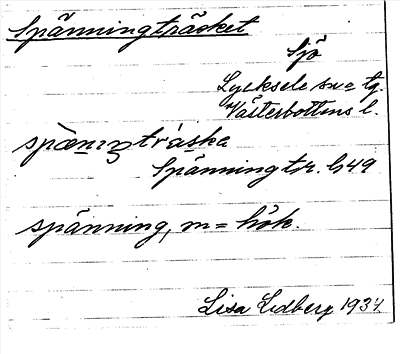 Spänningträsket
Sjö
Lycksele sn o tg.
Västerbottens l.
spæniŋtrǻska
Spänningtr. G49
spänning, m = hök.
Lisa Lidberg 1937.